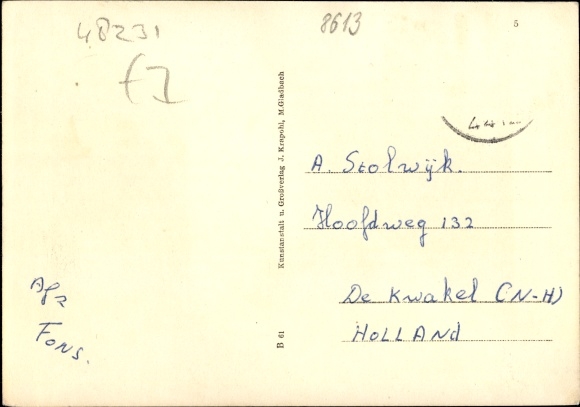 48231
8613
5
A. Stolwijk.
Hoofdweg 132
De Kwakel (N-H)
HOLLAND
Afz
Fons.
Kunstanstalt u. Großverlag J. Krapohl, M.Gladbach
B 61